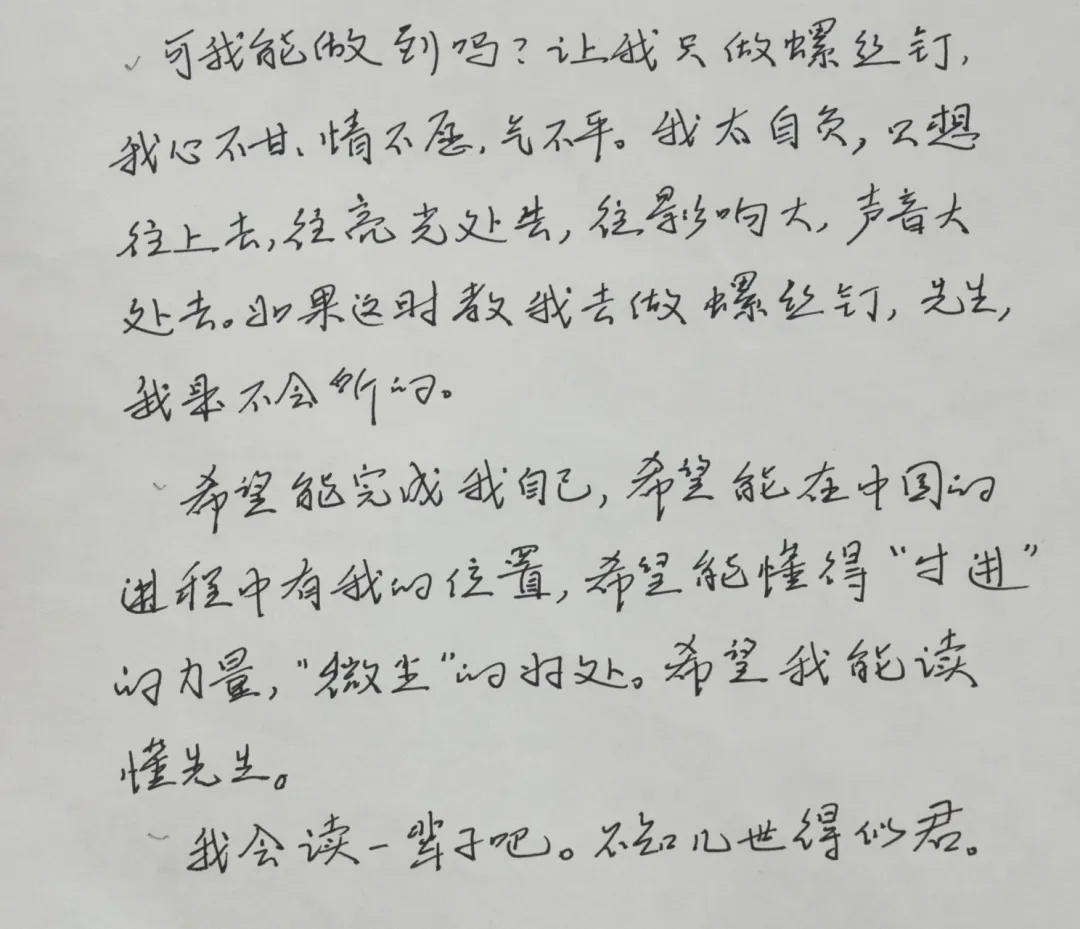 可我能做到吗？让我只做螺丝钉，
我心不甘、情不愿、气不平。我太自负，只想
往上去，往亮光处去，往影响大，声音大
处去。如果这时教我去做螺丝钉，先生，
我是不会听的。
希望能完成我自己，希望能在中国的
进程中有我的位置，希望能懂得“寸进”
的力量，“微尘”的好处。希望我能读
懂先生。
我会读一辈子吧。不知几世得似君。